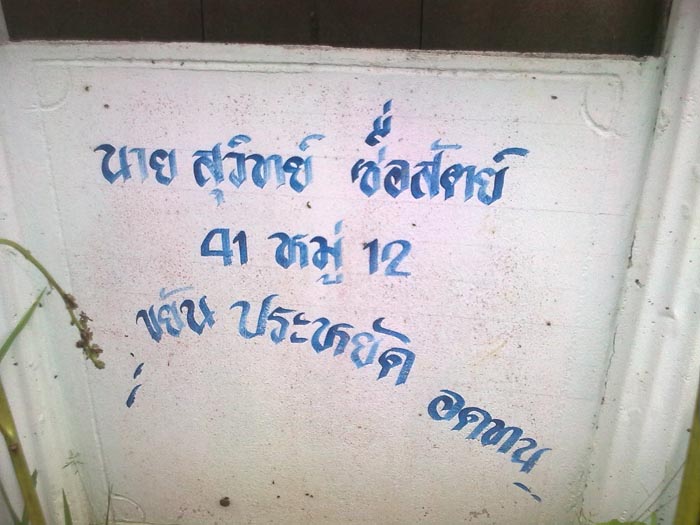 นาย สุวิทย์ ซื่อสัตย์
41 หมู่ 12
ขยัน ประหยัด อดทน